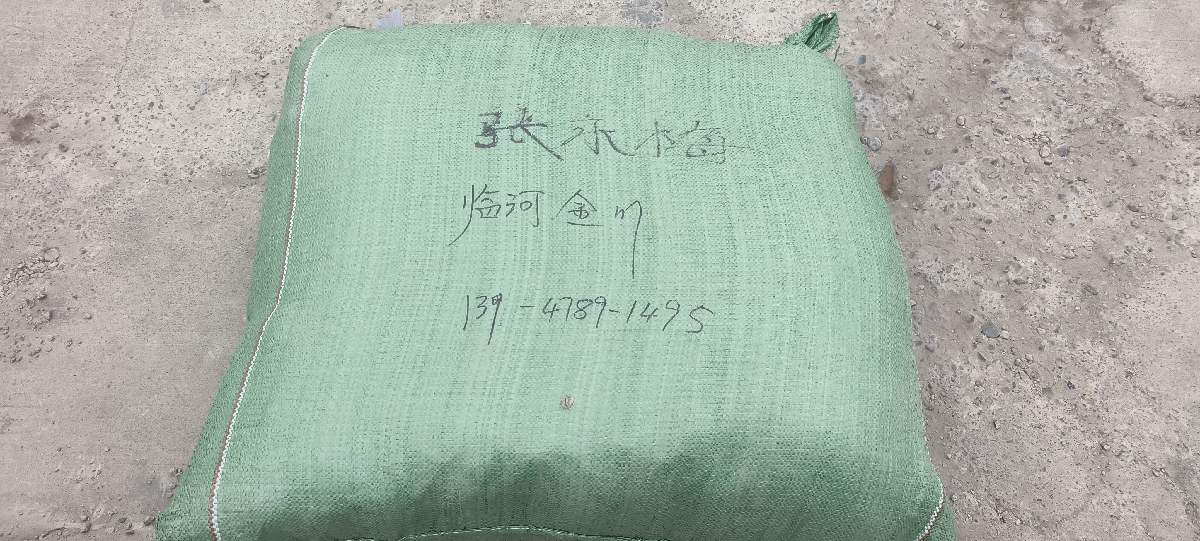 張永梅
临河金川
139-4789-1495